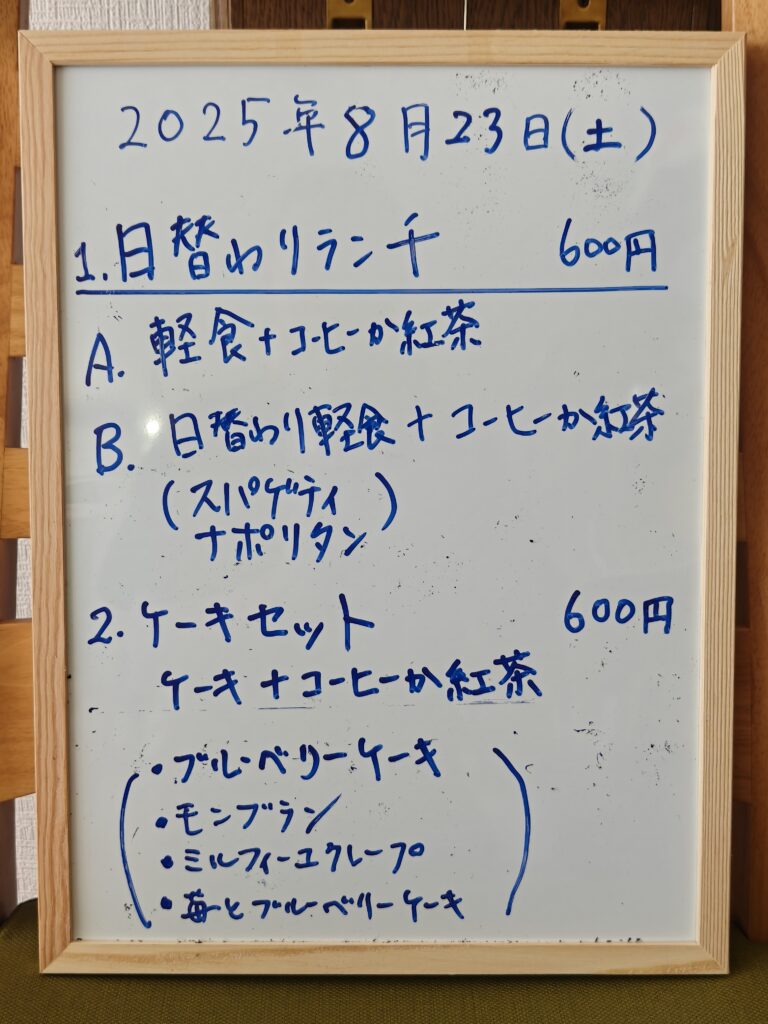 2025年8月23日(土)
1.日替わりランチ 600円
A. 軽食+コーヒーか紅茶
B. 日替わり軽食+コーヒーか紅茶
(スパゲティ
ナポリタン)
2.ケーキセット 600円
ケーキ+コーヒーか紅茶
(・ブルーベリーケーキ
・モンブラン
・ミルフィーユクレープ
・苺とブルーベリーケーキ)